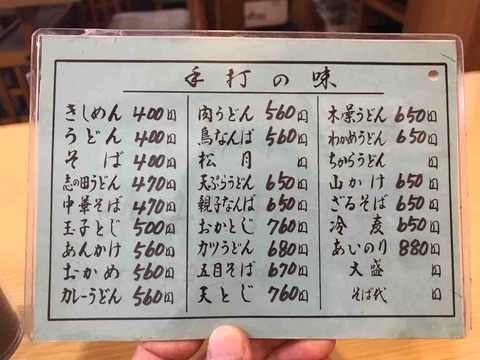 手打の味
きしめん 400円
うどん 400円
そば 400円
志の田うどん 470円
中華そば 470円
玉子とじ 500円
あんかけ 560円
おかめ 560円
カレーうどん 560円
肉うどん 560円
鳥なんば 560円
松月 円
天ぷらうどん 650円
親子なんば 650円
おかとじ 760円
カツうどん 680円
五目そば 670円
天とじ 760円
木の葉うどん 650円
わかめうどん 650円
ちからうどん 円
山かけ 650円
ざるそば 650円
冷麦 650円
あいのり 880円
大盛 円
そば代 円